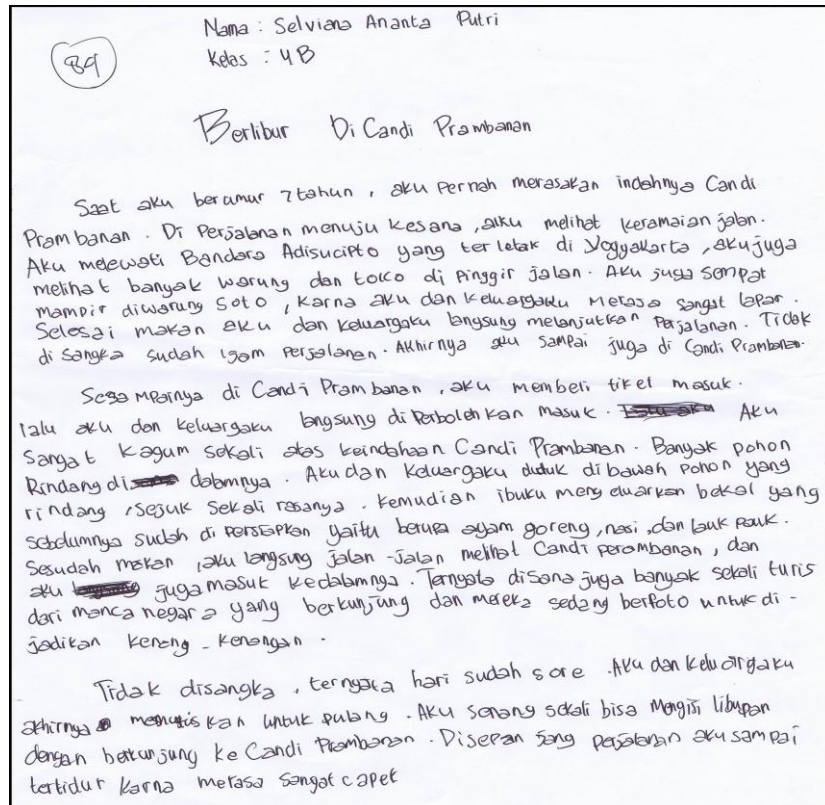 Nama : Selviana Ananta Putri
89
Kelas : 4B
Berlibur Di Candi Prambanan
Saat aku berumur 7 tahun, aku pernah merasakan indahnya Candi
Prambanan. Di Perjalanan menuju kesana, aku melihat keramaian jalan.
Aku melewati Bandara Adisucipto yang terletak di Yogyakarta, aku juga
melihat banyak warung dan toko di pinggir jalan. Aku juga sempat
mampir diwarung Soto, karna aku dan keluargaku merasa sangat lapar.
Selesai makan aku dan keluargaku langsung melanjutkan perjalanan. Tidak
di sangka sudah 1 jam perjalanan. Akhirnya aku sampai juga di Candi Prambanan.
Sesampainya di Candi Prambanan, aku memberi tiket masuk.
lalu aku dan keluargaku langsung di Perbolehkan masuk. Aku
Sangat kagum sekali atas keindahaan Candi Prambanan. Banyak pohon
Rindang di dalamnya. Aku dan keluargaku duduk dibawah pohon yang
rindang, sejuk sekali rasanya. kemudian ibuku mengeluarkan bekal yang
sebelumnya sudah di persiapkan yaitu berupa ayam goreng, nasi, dan lauk pauk.
Sesudah makan, aku langsung jalan-jalan melihat Candi perambanan, dan
aku juga masuk kedalamnya. Ternyata disana juga banyak sekali turis
dari manca negara yang berkunjung dan mereka sedang berfoto untuk di-
jadikan kenang-kenangan.
Tidak disangka, ternyata hari sudah sore. Aku dan keluargaku
akhirnya memutuskan untuk pulang. Aku senang sekali bisa Mengisi liburan
dengan berkunjung ke Candi Prambanan. Disepanjang perjalanan aku sampai
tertidur karna merasa sangat capek